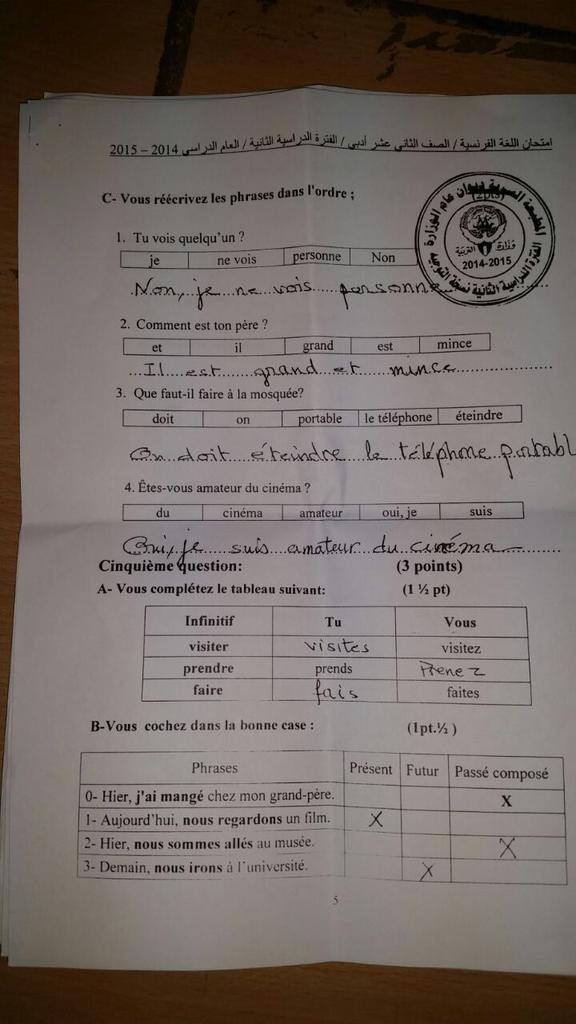 امتحان اللغة الفرنسية / الصف الثاني عشر أدبي / الفترة الدراسية الثانية / العام الدراسي 2014 – 2015
C- Vous réécrivez les phrases dans l'ordre ;
وزارة التربية
2014-2015
1. Tu vois quelqu'un ?
je ne vois personne Non
Non, je ne vois personne
2. Comment est ton père ?
et il grand est mince
Il est grand et mince
3. Que faut-il faire à la mosquée?
doit on portable le téléphone éteindre
On doit éteindre le téléphone portabl
4. Êtes-vous amateur du cinéma ?
du cinéma amateur oui, je suis
Oui, je suis amateur du cinéma
Cinquième question: (3 points)
A- Vous complétez le tableau suivant: (1 ½ pt)
Infinitif Tu Vous
visiter visites visitez
prendre prends Prenez
faire fais faites
B-Vous cochez dans la bonne case : (1pt.½ )
Phrases Présent Futur Passé composé
0- Hier, j'ai mangé chez mon grand-père. X
1- Aujourd'hui, nous regardons un film. X
2- Hier, nous sommes allés au musée. X
3- Demain, nous irons à l'université. X
5